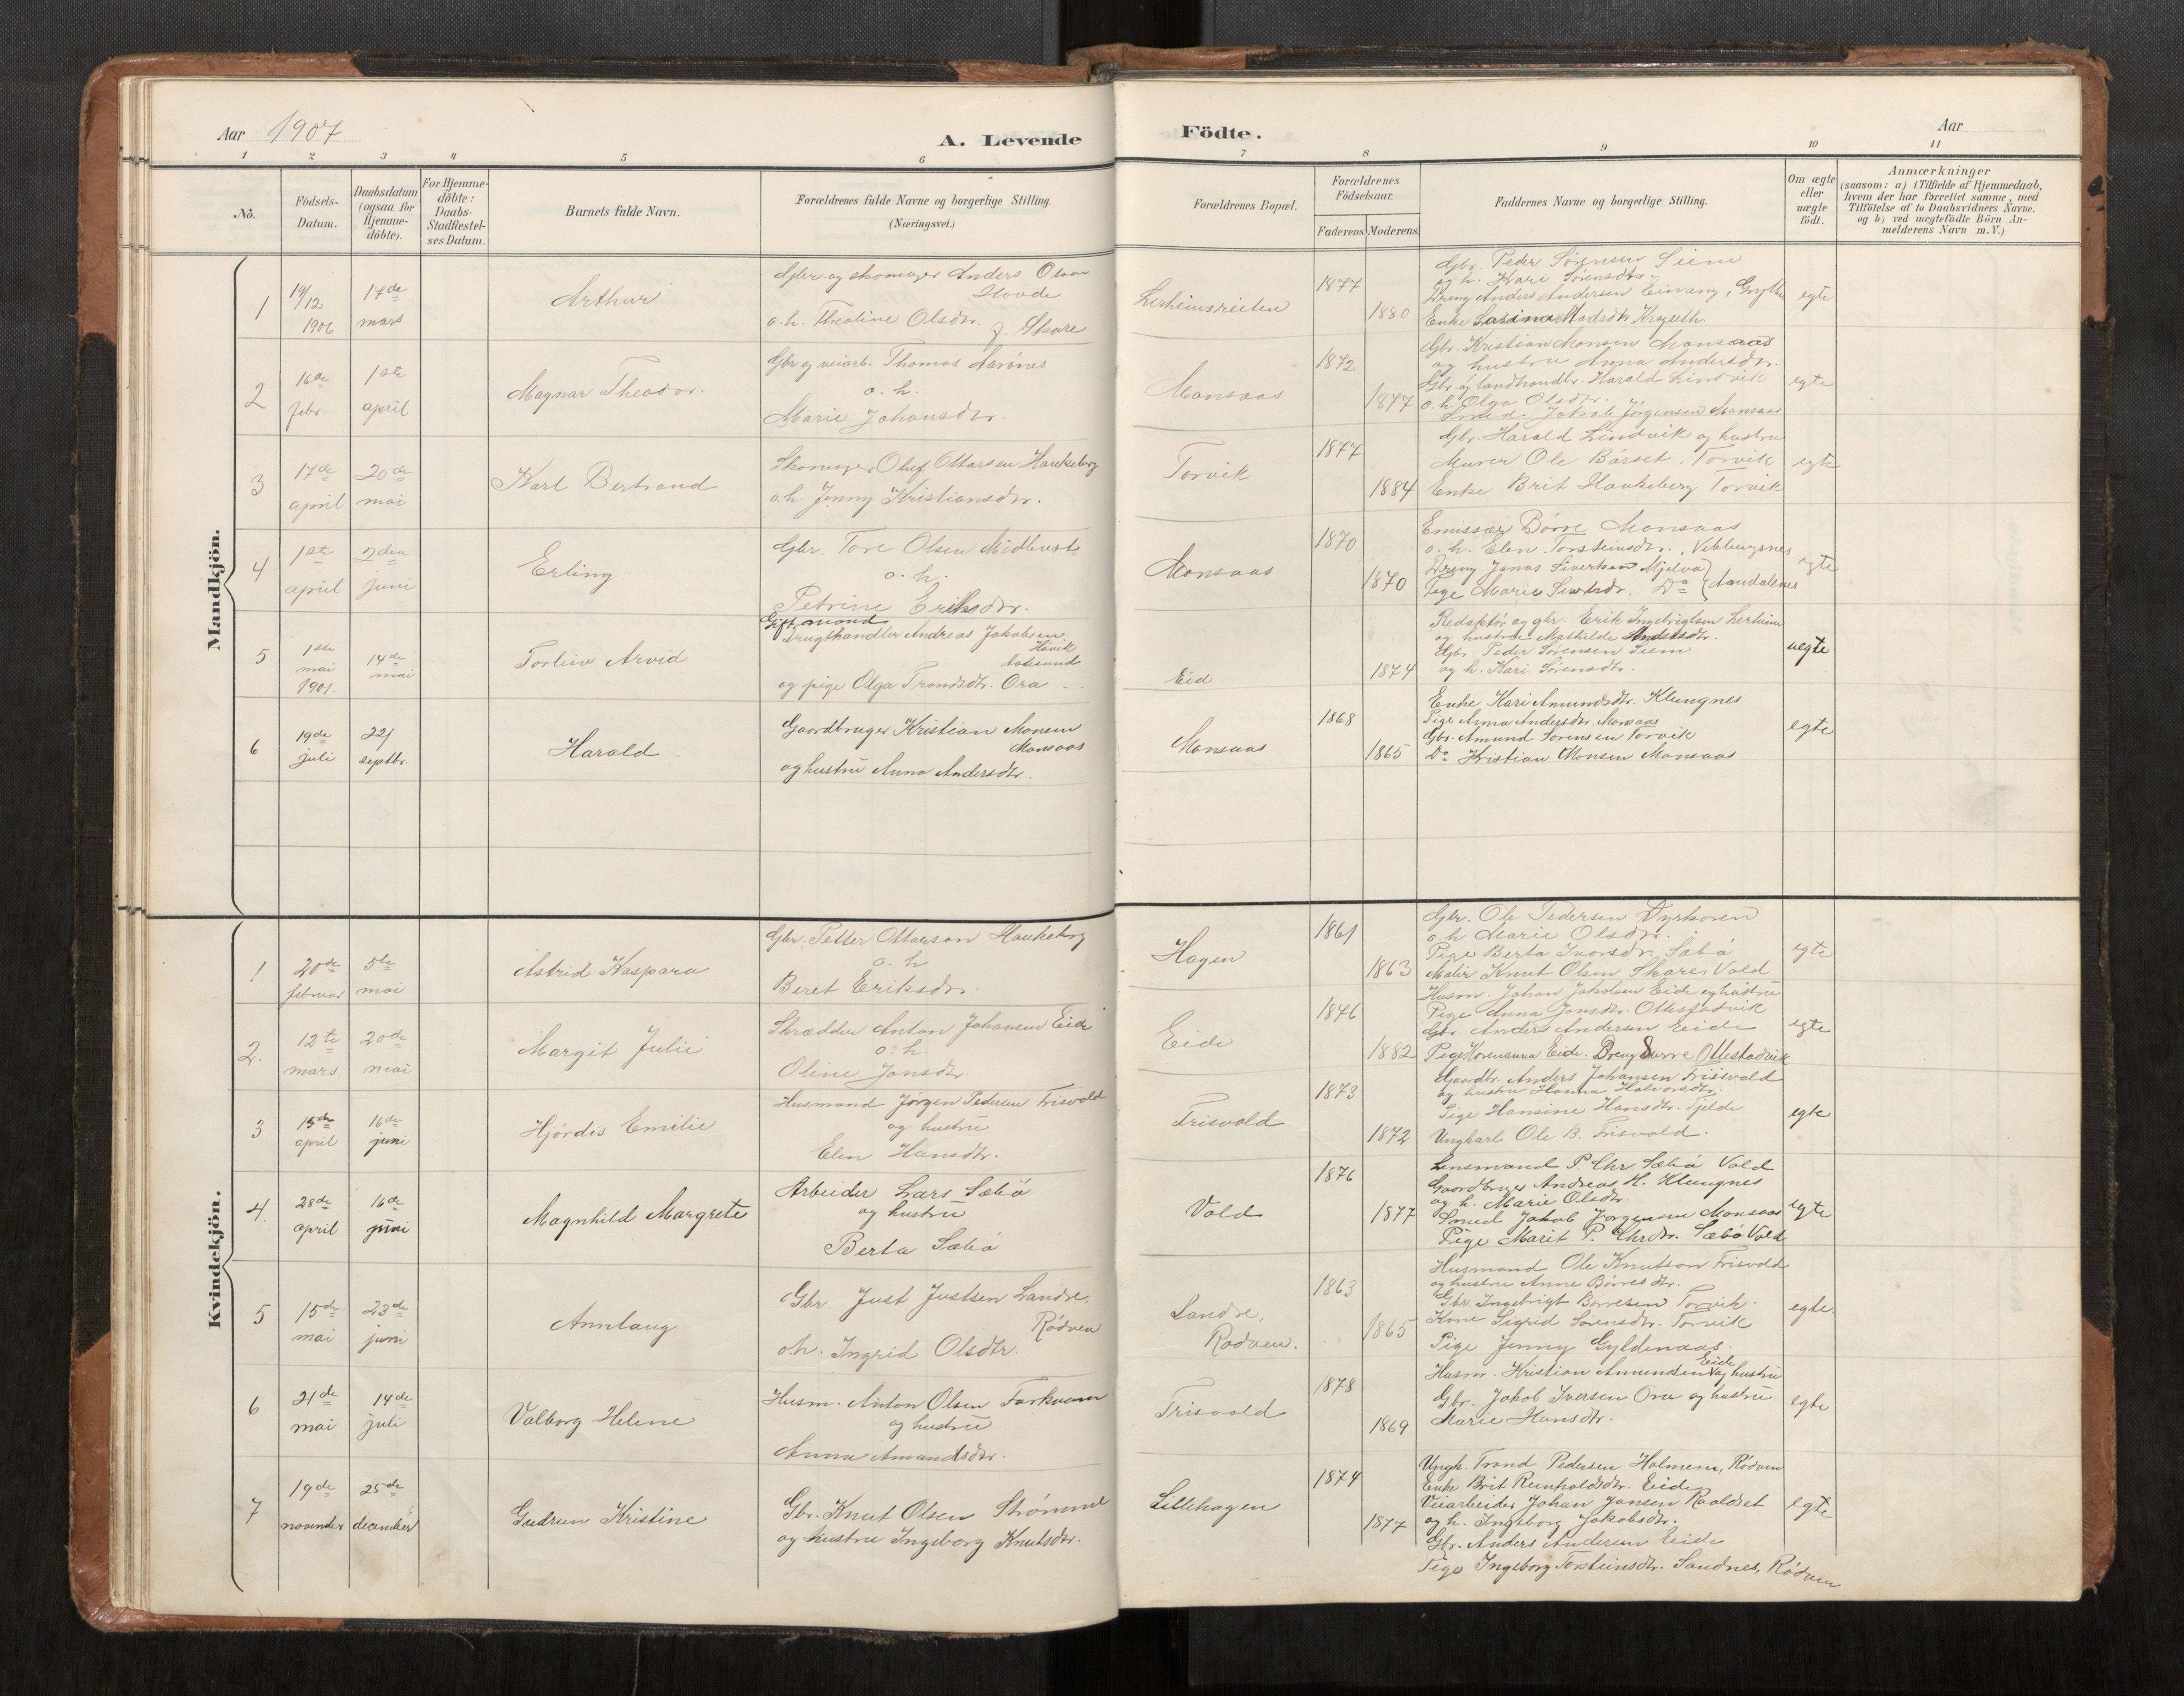 Aar 1907
A. Levende
Födte.
Aar
1 2 3 4 5 6 7 8 9 10 11
Nô.
Födsels-
Datum.
Daabsdatum
(ogsaa for
Hjemme-
döbte).
For Hjemme-
döbte:
Daabs-
Stadfestel-
ses Datum.
Barnets fulde Navn.
Forældrenes fulde Navne og borgerlige Stilling.
(Næringsvei.)
Forældrenes Bopæl.
Forældrenes
Födselsaar.
Faderens. Moderens.
Faddernes Navne og borgerlige Stilling.
Om ægte
eller
uægte
födt.
Anmærkninger
(saasom: a) i Tilfælde af Hjemmedaab,
hvem der har forrettet samme, med
Tilföielse af to Daabsvidners Navne,
og b) ved uægtefödte Börn An-
melderens Navn m. V.)
Mandkjön.
1
19/12
1906
17de
mars
Arthur
Gbr og skomager Anders Olsen
Hovde
o. h. Theoline Olsdtr. f. Skare
Lerheimsreiten
1877
1880
Gbr. Peder Sörensen Siem
og h. Kari Sörensdtr.
Dreng Anders Andersen Einang, Grytten
Enke Sarina Madsdtr
egte
2
16de
febr.
1ste
april
Magnar Theodor.
Gbr og veiarb. Thomas Aarönes
o. h.
Marie Johansdtr.
Monsaas
1872
1877
Gbr. Kristian Monsen Monsaas
og hustru Anna Andersdtr.
Gbr. og landhandlr. Harald Lindvik
o. h. Olga Olsdtr.
Smed. Jakob Jörgensen Monsaas
egte
3
17de
april
20de
mai
Karl Bertrand
Skomager Oluf Ottarsen Haukeberg
o. h. Jenny Kristiansdtr.
Torvik
1877
1884
Gbr. Harald Lindvik og hustru
Murer Ole Bårset. Torvik
Enke Brit Haukeberg Torvik
egte
4
1ste
april
2den
juni
Erling
Gbr. Tore Olsen Midbust
o. h.
Petrine Eriksdtr.
Monsaas
1870
1870
Emissær Börre Monsaas
o. h. Elen Torsteinsdtr., Vebbungsnes
Dreng Jonas Siversen Mjelva
Pige Marie Do Aandalsnes
egte
5
1ste
mai
1901.
14de
mai
Torleiv Arvid
Gift mand
Frugthandler Andreas Jakobsen
Hövik
Aalesund
og pige Olga Trondsdtr. Ora
Eid
1874
Redaktör og gbr. Erik Ingebrigtsen Lerheim
og hustru Mathilde Andersdtr.
Gbr. Peder Sörensen Siem
og h. Kari Sörensdtr.
uegte
6
19de
juli
22/
septbr.
Harald
Gaardbruger Kristian Monsen
Monsaas
og hustru Anna Andersdtr.
Monsaas
1868
1865
Enke Kari Amundsdtr. Klungnes
Pige Anna Andersdtr. Monsaas
Gbr. Amund Sörensen Torvik
Do Kristian Monsen Monsaas
egte
Kvindekjön.
1
20de
februar
5te
mai
Astrid Kaspara
Gbr. Petter Ottarson Haukeberg
o. h
Beret Eriksdtr.
Hagen
1861
1863
Gbr. Ole Pedersen Dyrkoren
o. h Marie Olsdtr.
Pige Berta Ivarsdtr. Sæbö
Maler Knut Olsen Skare, Vold
egte
2.
12te
mars
20de
mai
Margit Julii
Skrædder Anton Johansen Eide
o. h.
Oline Jonsdtr.
Eide
1846
1882
Husm. Johan Jakobsen Eide og hustru
Pige Anna Jonsdtr. Ottestadvik
Gbr. Anders Andersen Eide
Pige Horenanna Eide. Dreng Sverre Ottestadvik
egte
3
15de
april
16de
juni
Hjördis Emilie
Husmand Jörgen Pedersen Frisvold
og hustru
Elen Hansdtr.
Frisvold
1873
1872
Gaardbr. Anders Johansen Frisvold
og hustru Hanna Halvorsdtr.
Pige Hansine Hansdtr. Fjelde
Ungkarl Ole B. Frisvold.
egte
4.
28de
april
16de
juni
Magnhild Margrete
Arbeider Lars Sæbö
og hustru
Berta Sæbö
Vold
1876
1877
Lensmand P. Chr Sæbö Vold
Gaardbruger Andreas H. Klungnes
og h. Marie Olsdtr.
Smed Jakob Jörgensen Monsaas
Pige Marit P. Chrdtr. Sæbö Vold
egte
5
15de
mai
23de
juni
Annlaug
Gbr. Just Justsen Landre,
Rödven
o. h. Ingrid Olsdtr.
Landre,
Rödven.
1863
1865
Husmand Ole Knutson Frisvold
og hustru Anne Börresdtr.
Gbr. Ingebrigt Börresen Torvik.
Kone Sigrid Sörensdtr. Torvik
Pige Jenny Gyldenaas.
egte
6
21de
mai
14de
juli
Valborg Helene
Husm. Anton Olsen Torkvam
og hustru
Anna Amundsdtr.
Frisvold
1878
1869
Husm. Kristian Amundsen Eide og hustru
Gbr. Jakob Iversen Ora og hustru
Marie Hansdtr.
egte
7
19de
november
25de
december
Gudrun Kristine
Gbr. Knut Olsen Strömme
og hustru Ingeborg Knutsdtr.
Lillehagen
1874
1877
Ungk. Trond Pedersen Holmem, Rödven
Enke Brit Reinholdsdtr. Eide
Veiarbeider Johan Jansen Roaldset
og h. Ingeborg Jakobsdtr.
Gbr. Anders Andersen Eide
Pige Ingeborg Torsteinsdtr. Sandnes, Rödven
egte